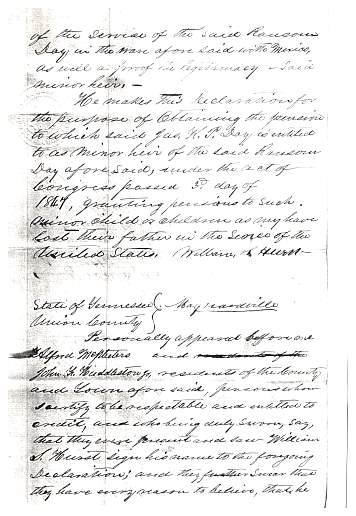 of the Service of the said Ransom
Day in the war afore said with Mexico,
as well as proof in legitimacy of said
minor heir. –
He makes this Declaration for
the purpose of Obtaining the pension
to which said Jas. H. P. Day is entitled
to as Minor heir of the said Ransom
Day afore Said, under the act of
Congress passed 3rd day of
1847, granting pensions to Such
Minor Child or Children as may have
Lost their father in the Service of the
United States. William S. Hurst
State of Tennessee } Maynardville
Union County }
Personally appeared before me
Alford McPeters and
John F. Huddleston, residents of the County
and Town afore said, persons whom
I certify to be respectable and entitled to
credit, and who being duly Sworn, Say,
that they were present and saw William
S. Hurst sign his name to the foregoing
Declaration; and they further Swear that
they have every reason to believe, that he